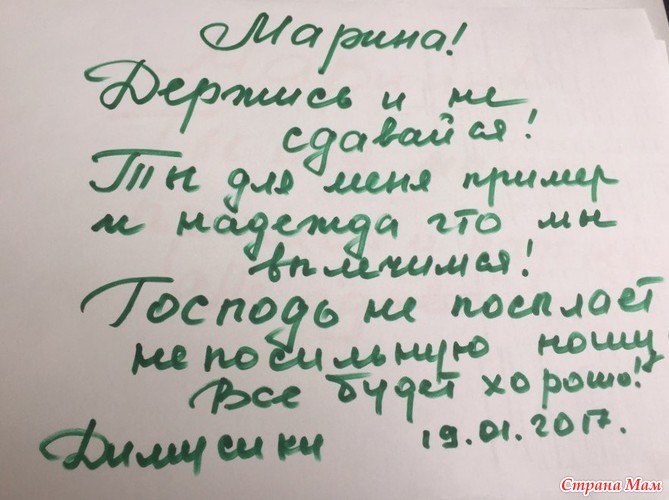 Марина!
Держись и не
сдавайся!
Ты для меня пример
и надежда что мы
вылечимся!
Господь не посылает
непосильную ношу
Все будет хорошо!
Димусики 19.01.2017.
Страна Мам